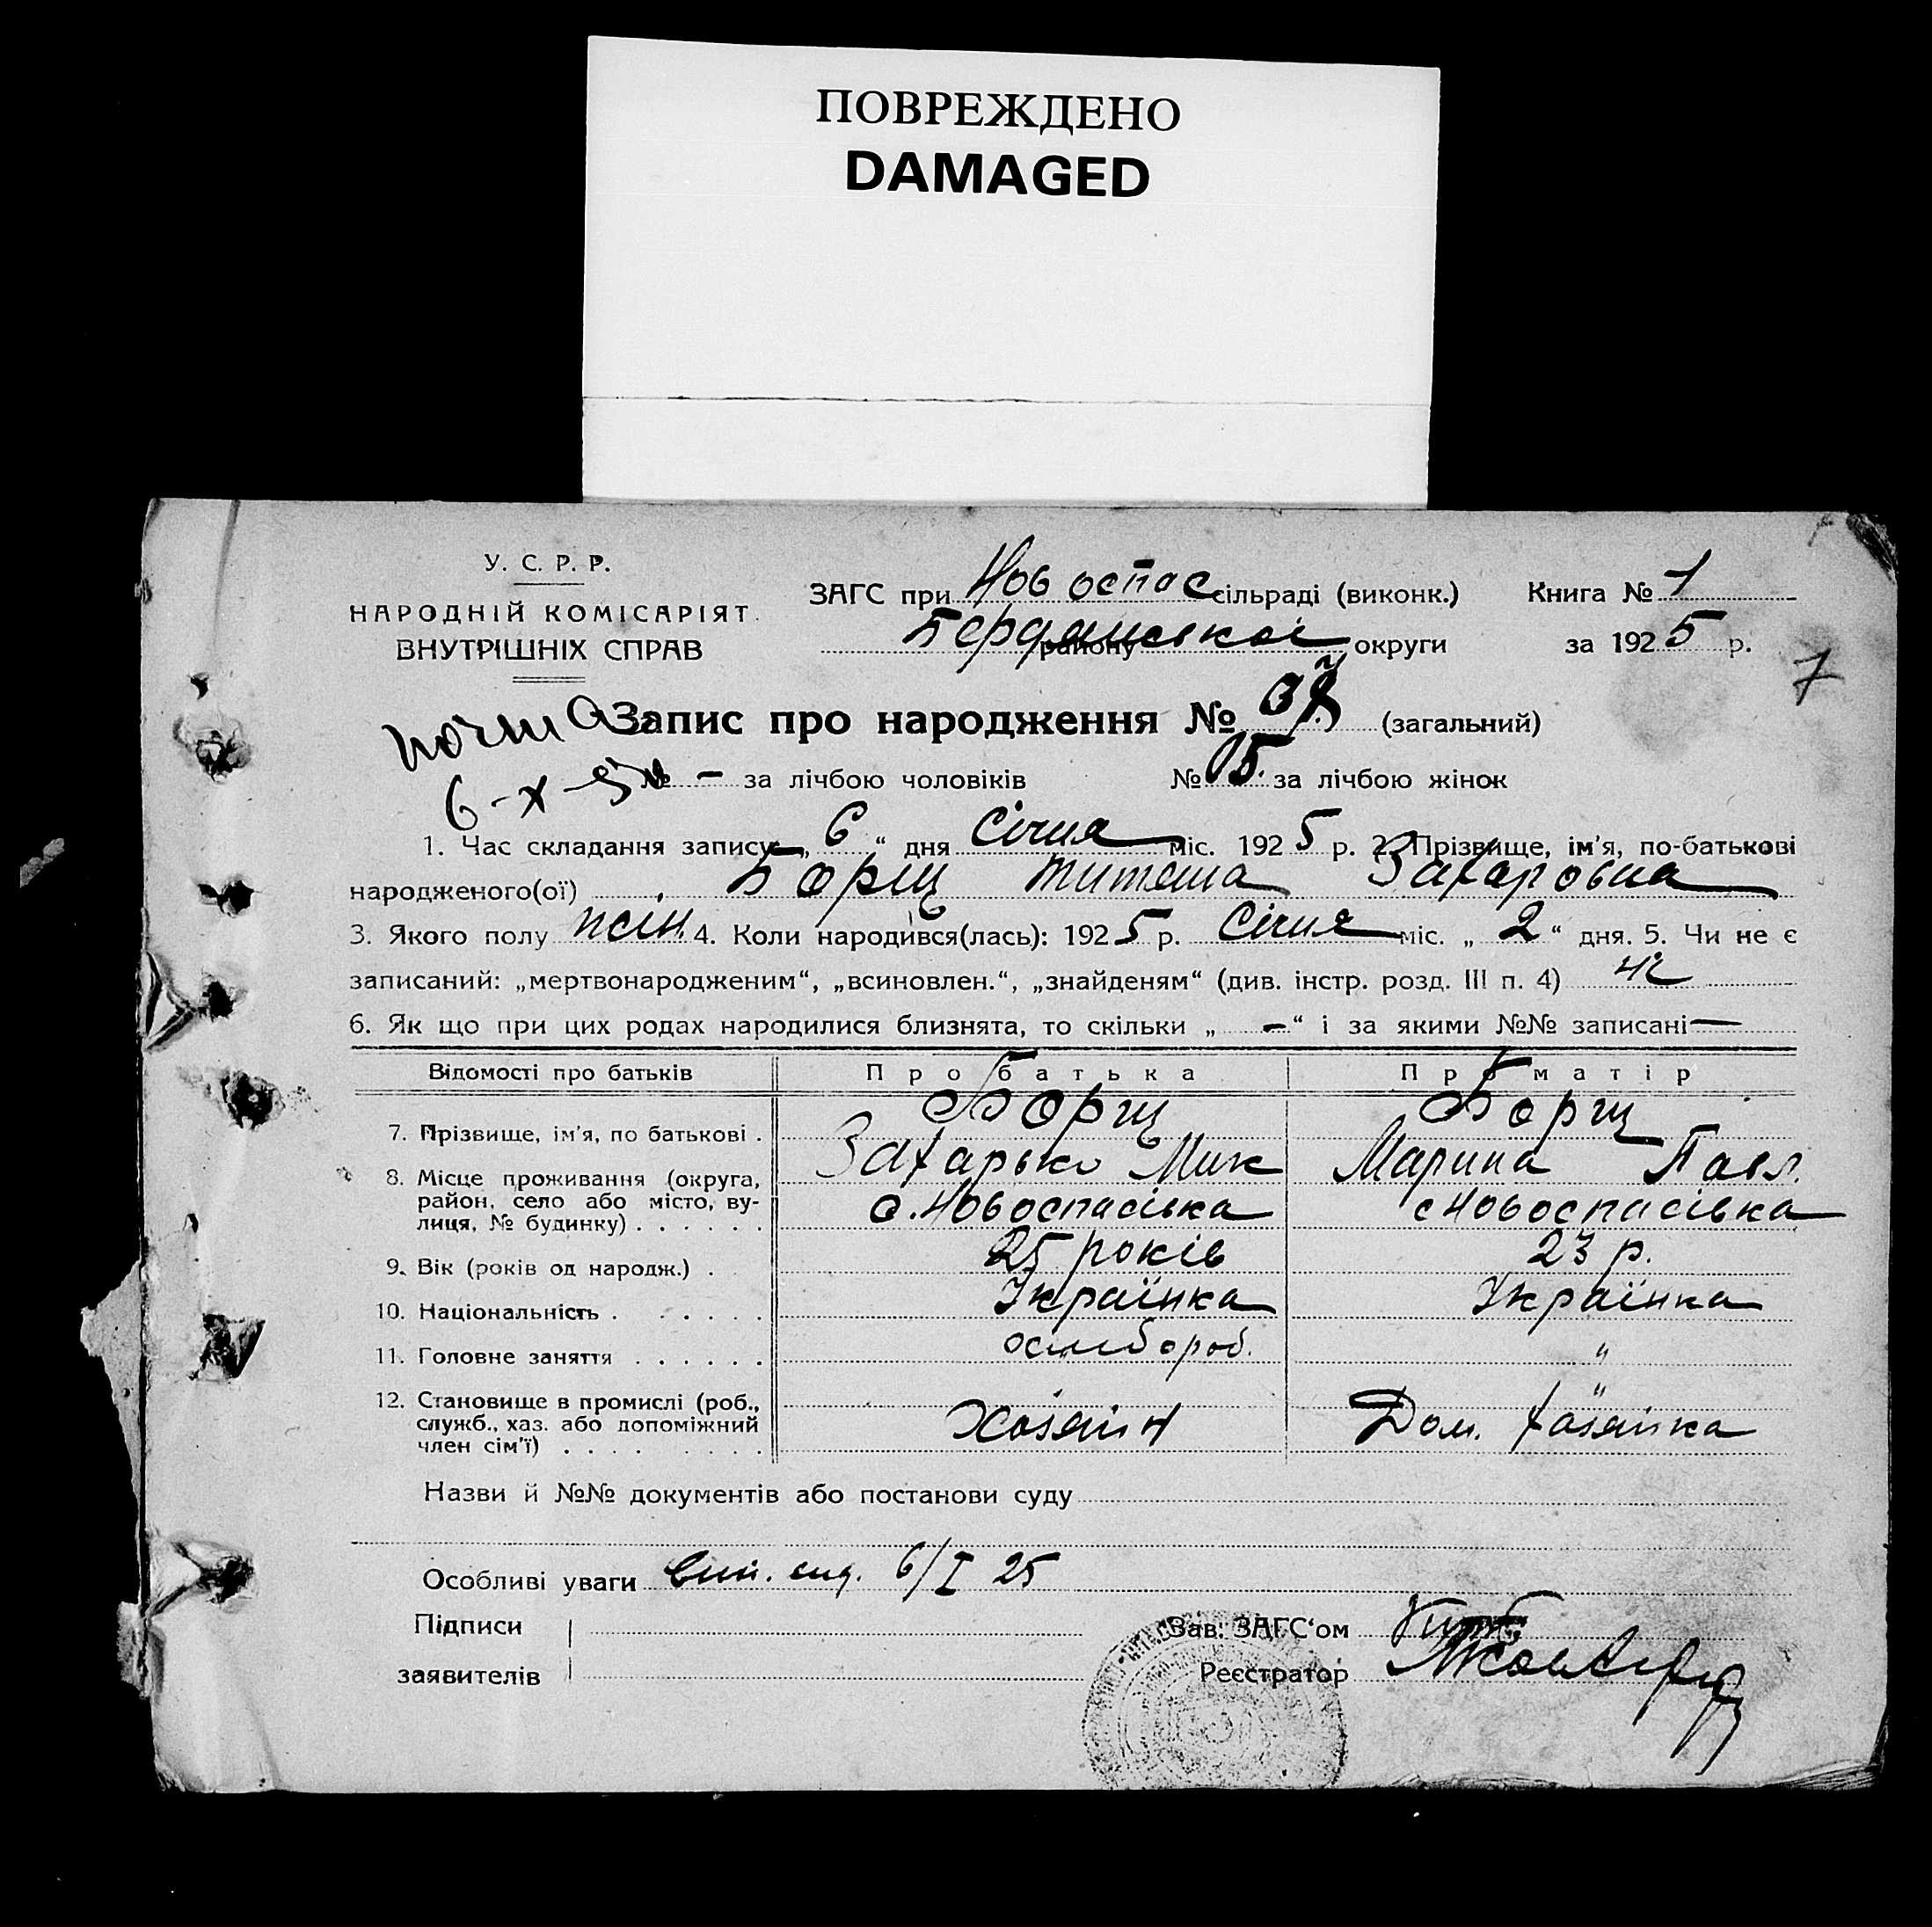 ПОВРЕЖДЕНО
DAMAGED
У. С. Р. Р.
НАРОДНІЙ КОМІСАРІЯТ
ВНУТРІШНІХ СПРАВ
ЗАГС при Новоспас сільраді (виконк.)
Бердянської району округи
Книга № 1
за 1925 р.
7
Запис про народження № (загальний)
6-X-
№ – за лічбою чоловіків № 05. за лічбою жінок
1. Час складання запису: „ 6 “ дня Січня міс. 1925 р. 2. Прізвище, ім'я, по-батькові
народженого(ої) Борщ Захаровна
3. Якого полу жін. 4. Коли народився(лась): 1925 р. Січня міс. „ 2 “ дня. 5. Чи не є
записаний: „мертвонародженим“, „всиновлен.“, „знайденям“ (див. інстр. розд. III п. 4) ні
6. Як що при цих родах народилися близнята, то скільки „ – “ і за якими №№ записані —
Відомості про батьків Про батька Про матір
7. Прізвище, ім'я, по батькові . Борщ Борщ
Захарько Мик Марина Павл.
8. Місце проживання (округа,
район, село або місто, ву-
лиця, № будинку) . . . . . . с. Новоспасівка с Новоспасівка
9. Вік (років од народж.) . 25 років 23 р.
10. Національність . . . . . . Українка Українка
11. Головне заняття . . . . . . "
12. Становище в промислі (роб.,
служб., хаз. або допоміжний
член сім'ї) . . . . . . . . Хозяїн " Дом. хазяйка
Назви й №№ документів або постанови суду
Особливі уваги 6/I 25
Підписи
заявителів
Зав. ЗАГС‘ом
Реєстратор